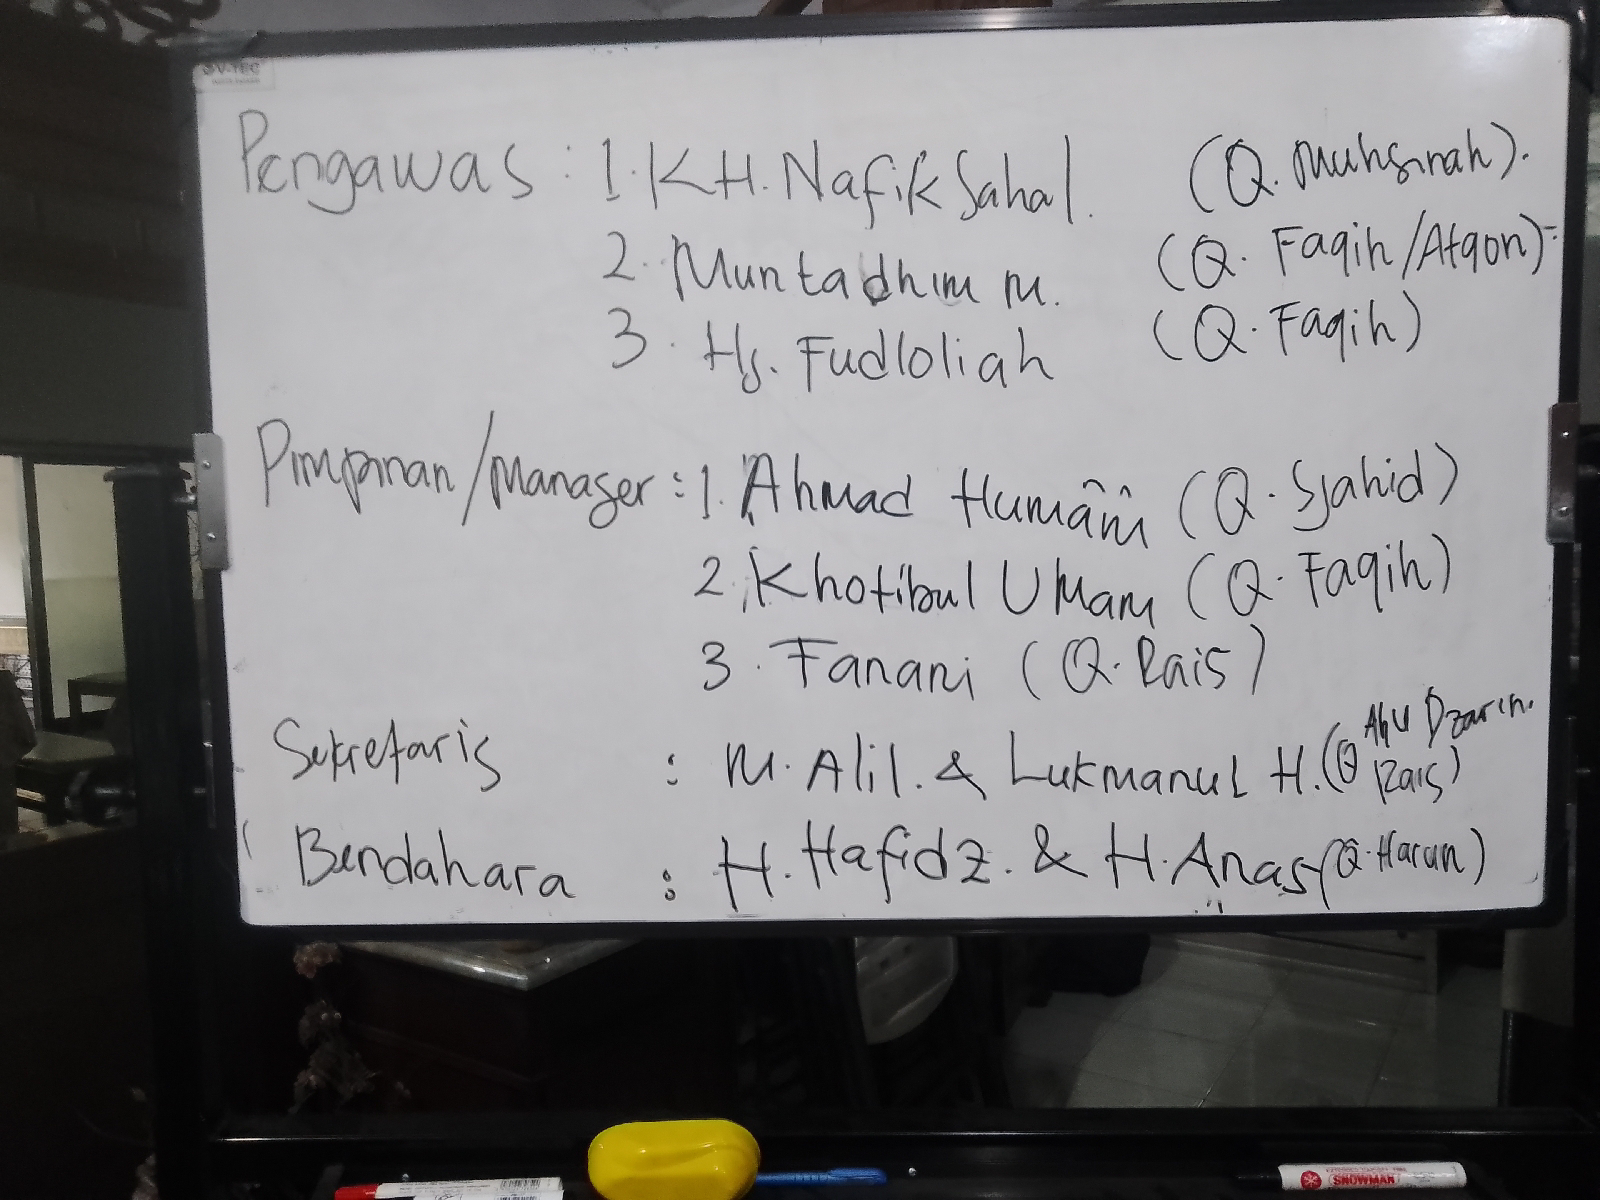 V-TEC
Pengawas : 1. KH. Nafik Sahal. (Q. Muhsinah).
2. Muntadhim M. (Q. Faqih/Atqon)
3. Hj. Fudloliah (Q. Faqih)
Pimpinan/Manager : 1. Ahmad Humam (Q. Syahid)
2. Khotibul Umam (Q. Faqih)
3. Fanani (Q. Rais)
Sekretaris : M. Alil. & Lukmanul H. (Q Abu Dzarin.
Rais)
Bendahara : H. Hafidz. & H. Anas (Q. Harun)
SNOWMAN